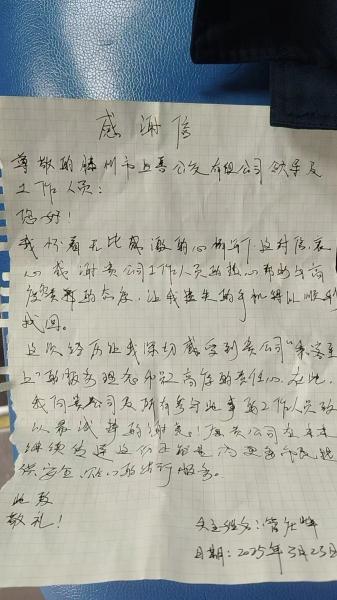 感谢信
尊敬的滕州市上善公交有限公司领导及
工作人员:
您好!
我怀着无比感激的心情写下这封信,衷
心感谢贵公司工作人员的热心帮助与高
度负责的态度,让我丢失的手机得以顺利
找回。
这次经历让我深切感受到贵公司“乘客至
上”的服务理念和高度的责任心。在此,
我向贵公司及所有参与此事的工作人员致
以最诚挚的谢意!愿贵公司在未来
继续传递这份正能量,为更多市民提
供安全、贴心的出行服务。
此致
敬礼!
失主姓名:管
日期:2025年3月23日